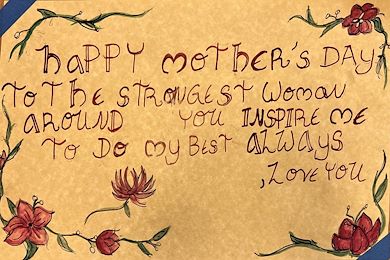 HAPPY MOTHER'S DAY
TO THE STRONGEST WOMAN
AROUND YOU INSPIRE ME
TO DO MY BEST ALWAYS
,LOVE YOU